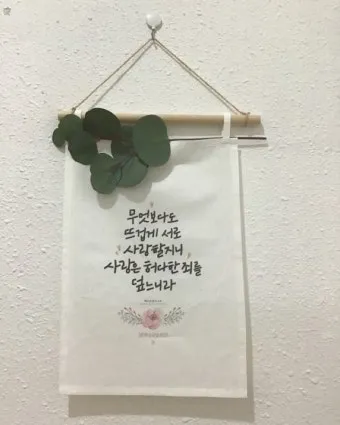 무엇보다도
뜨겁게 서로
사랑할지니
사랑은 허다한 죄를
덮느니라